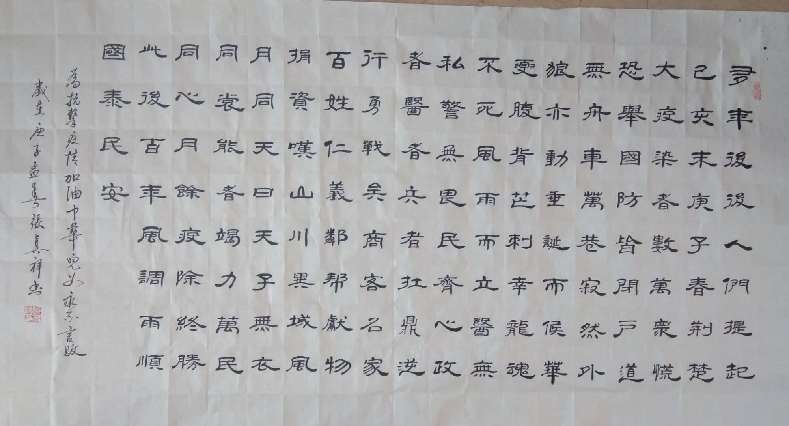 多年後後人們提起
己亥末庚子春荆楚
大疫染者數萬衆慌
恐舉國防皆閉戶道
無舟車萬巷寂然外
狼亦動垂涎而候華
耍腹背芒刺幸龍魂
不死風雨而立醫無
私警無畏民齊心政
者醫者兵者扛鼎逆
行勇戰矣商客名家
百姓仁義鄰邦獻物
捐資嘆山川異域風
月同天曰天子無衣
同裳能者竭力萬民
同心月餘疫除終勝
此後百年風調雨順
國泰民安
為抗擊疫情加油中華
歲在庚子孟春張真祥書